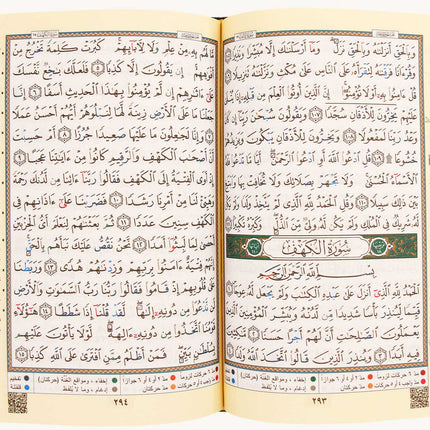 وَبِٱلْحَقِّ أَنزَلْنَٰهُ وَبِٱلْحَقِّ نَزَلَ ۗ وَمَآ أَرْسَلْنَٰكَ إِلَّا مُبَشِّرًا وَنَذِيرًا ١٠٥
وَقُرْءَانًا فَرَقْنَٰهُ لِتَقْرَأَهُۥ عَلَى ٱلنَّاسِ عَلَىٰ مُكْثٍ وَنَزَّلْنَٰهُ تَنزِيلًا ١٠٦
قُلْ ءَامِنُوا۟ بِهِۦٓ أَوْ لَا تُؤْمِنُوٓا۟ ۚ إِنَّ ٱلَّذِينَ أُوتُوا۟ ٱلْعِلْمَ مِن قَبْلِهِۦٓ إِذَا يُتْلَىٰ
عَلَيْهِمْ يَخِرُّونَ لِلْأَذْقَانِ سُجَّدًا ١٠٧ وَيَقُولُونَ سُبْحَٰنَ رَبِّنَآ إِن كَانَ
وَعْدُ رَبِّنَا لَمَفْعُولًا ١٠٨ وَيَخِرُّونَ لِلْأَذْقَانِ يَبْكُونَ وَيَزِيدُهُمْ
خُشُوعًا ۩ ١٠٩ قُلِ ٱدْعُوا۟ ٱللَّهَ أَوِ ٱدْعُوا۟ ٱلرَّحْمَٰنَ ۖ أَيًّا مَّا تَدْعُوا۟ فَلَهُ
ٱلْأَسْمَآءُ ٱلْحُسْنَىٰ ۚ وَلَا تَجْهَرْ بِصَلَاتِكَ وَلَا تُخَافِتْ بِهَا وَٱبْتَغِ
بَيْنَ ذَٰلِكَ سَبِيلًا ١١٠ وَقُلِ ٱلْحَمْدُ لِلَّهِ ٱلَّذِى لَمْ يَتَّخِذْ وَلَدًا وَلَمْ يَكُن
لَّهُۥ شَرِيكٌ فِى ٱلْمُلْكِ وَلَمْ يَكُن لَّهُۥ وَلِىٌّ مِّنَ ٱلذُّلِّ ۖ وَكَبِّرْهُ تَكْبِيرًۢا ١١١
سُورَةُ الكَهْفِ
بِسْمِ ٱللَّهِ ٱلرَّحْمَٰنِ ٱلرَّحِيمِ
ٱلْحَمْدُ لِلَّهِ ٱلَّذِىٓ أَنزَلَ عَلَىٰ عَبْدِهِ ٱلْكِتَٰبَ وَلَمْ يَجْعَل لَّهُۥ عِوَجَا ۜ ١
قَيِّمًا لِّيُنذِرَ بَأْسًا شَدِيدًا مِّن لَّدُنْهُ وَيُبَشِّرَ ٱلْمُؤْمِنِينَ ٱلَّذِينَ
يَعْمَلُونَ ٱلصَّٰلِحَٰتِ أَنَّ لَهُمْ أَجْرًا حَسَنًا ٢ مَّٰكِثِينَ
فِيهِ أَبَدًا ٣ وَيُنذِرَ ٱلَّذِينَ قَالُوا۟ ٱتَّخَذَ ٱللَّهُ وَلَدًا ٤
٢٩٣
مَّا لَهُم بِهِۦ مِنْ عِلْمٍ وَلَا لِءَابَآئِهِمْ ۚ كَبُرَتْ كَلِمَةً تَخْرُجُ مِنْ
أَفْوَٰهِهِمْ ۚ إِن يَقُولُونَ إِلَّا كَذِبًا ٥ فَلَعَلَّكَ بَٰخِعٌ نَّفْسَكَ
عَلَىٰٓ ءَاثَٰرِهِمْ إِن لَّمْ يُؤْمِنُوا۟ بِهَٰذَا ٱلْحَدِيثِ أَسَفًا ٦ إِنَّا
جَعَلْنَا مَا عَلَى ٱلْأَرْضِ زِينَةً لَّهَا لِنَبْلُوَهُمْ أَيُّهُمْ أَحْسَنُ عَمَلًا
٧ وَإِنَّا لَجَٰعِلُونَ مَا عَلَيْهَا صَعِيدًا جُرُزًا ٨ أَمْ حَسِبْتَ
أَنَّ أَصْحَٰبَ ٱلْكَهْفِ وَٱلرَّقِيمِ كَانُوا۟ مِنْ ءَايَٰتِنَا عَجَبًا ٩
إِذْ أَوَى ٱلْفِتْيَةُ إِلَى ٱلْكَهْفِ فَقَالُوا۟ رَبَّنَآ ءَاتِنَا مِن لَّدُنكَ رَحْمَةً
وَهَيِّئْ لَنَا مِنْ أَمْرِنَا رَشَدًا ١٠ فَضَرَبْنَا عَلَىٰٓ ءَاذَانِهِمْ فِى
ٱلْكَهْفِ سِنِينَ عَدَدًا ١١ ثُمَّ بَعَثْنَٰهُمْ لِنَعْلَمَ أَىُّ ٱلْحِزْبَيْنِ
أَحْصَىٰ لِمَا لَبِثُوٓا۟ أَمَدًا ١٢ نَّحْنُ نَقُصُّ عَلَيْكَ نَبَأَهُم بِٱلْحَقِّ ۚ
إِنَّهُمْ فِتْيَةٌ ءَامَنُوا۟ بِرَبِّهِمْ وَزِدْنَٰهُمْ هُدًى ١٣ وَرَبَطْنَا
عَلَىٰ قُلُوبِهِمْ إِذْ قَامُوا۟ فَقَالُوا۟ رَبُّنَا رَبُّ ٱلسَّمَٰوَٰتِ وَٱلْأَرْضِ
لَن نَّدْعُوَا۟ مِن دُونِهِۦٓ إِلَٰهًا ۖ لَّقَدْ قُلْنَآ إِذًا شَطَطًا ١٤ هَٰٓؤُلَآءِ
قَوْمُنَا ٱتَّخَذُوا۟ مِن دُونِهِۦٓ ءَالِهَةً ۖ لَّوْلَا يَأْتُونَ عَلَيْهِم
بِسُلْطَٰنٍۭ بَيِّنٍ ۖ فَمَنْ أَظْلَمُ مِمَّنِ ٱفْتَرَىٰ عَلَى ٱللَّهِ كَذِبًا ١٥
٢٩٤